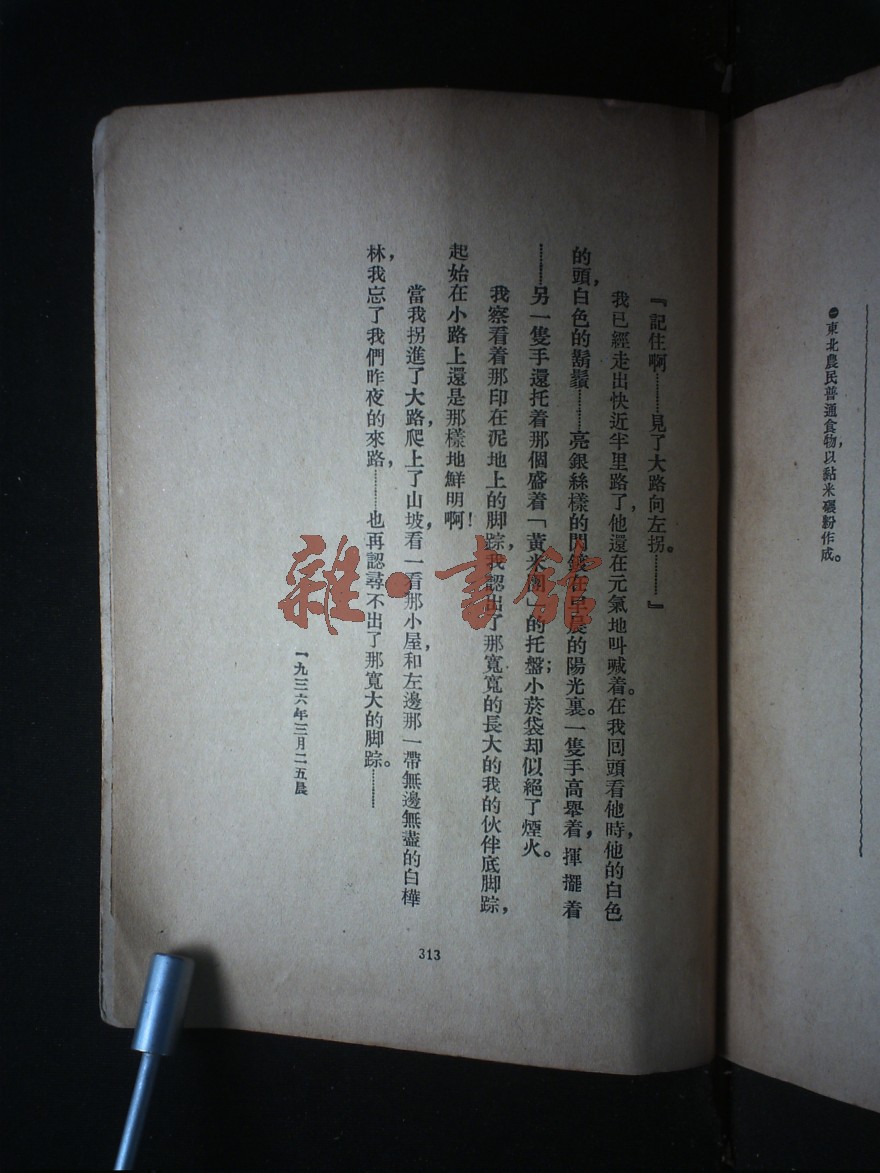 ❶東北農民普通食物，以黏米碾粉作成。
『記住啊………見了大路向左拐。………』
我已經走出快近半里路了，他還在元氣地叫喊着。在我回頭看他時，他的白色
的頭，白色的鬍鬚………亮銀絲樣的閃鑠在早晨的陽光裏。一隻手高舉着，揮擺着
………另一隻手還托着那個盛着「黃米團」的托盤；小菸袋却似絕了煙火。
我察看着那印在泥地上的脚踪，我認出了那寬寬的長大的我的伙伴底脚踪，
起始在小路上還是那樣地鮮明啊！
當我拐進了大路，爬上了山坡，看一看那小屋，和左邊那一帶無邊無盡的白樺
林，我忘了我們昨夜的來路，………也再認尋不出了那寬大的脚踪。………
一九三六年三月二五晨
313
雜·書館